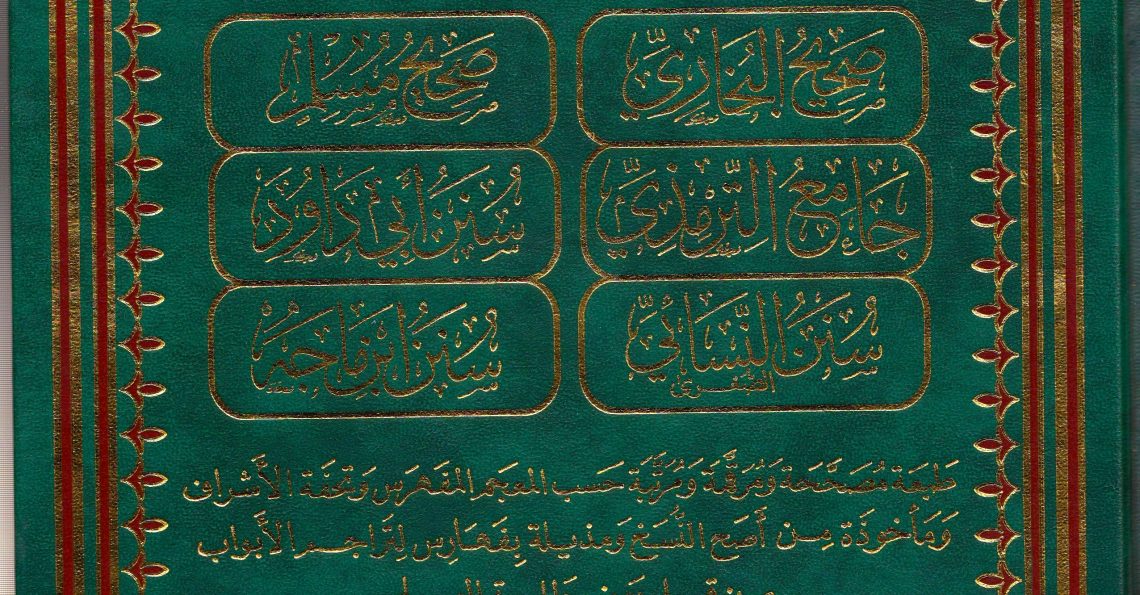 صَحِيحُ البُخَارِيِّ
صَحِيحُ مُسْلِم
جَامِعُ التِّرمِذِيِّ
سُنَنُ أَبِي دَاوُدَ
سُنَنُ النَّسَائِيِّ
الصُّغرى
سُنَنُ ابْنِ مَاجَه
طَبعَة مُصَحَّحَة وَمُرقَّمَة وَمُرتَّبَة حَسب المعجم المفهرس وَتحفَة الأَشراف
وَمَأخوذَة مِن أَصَح النُّسَخ وَمذيلة بِفَهَارِس لِتَراجِم الأَبواب